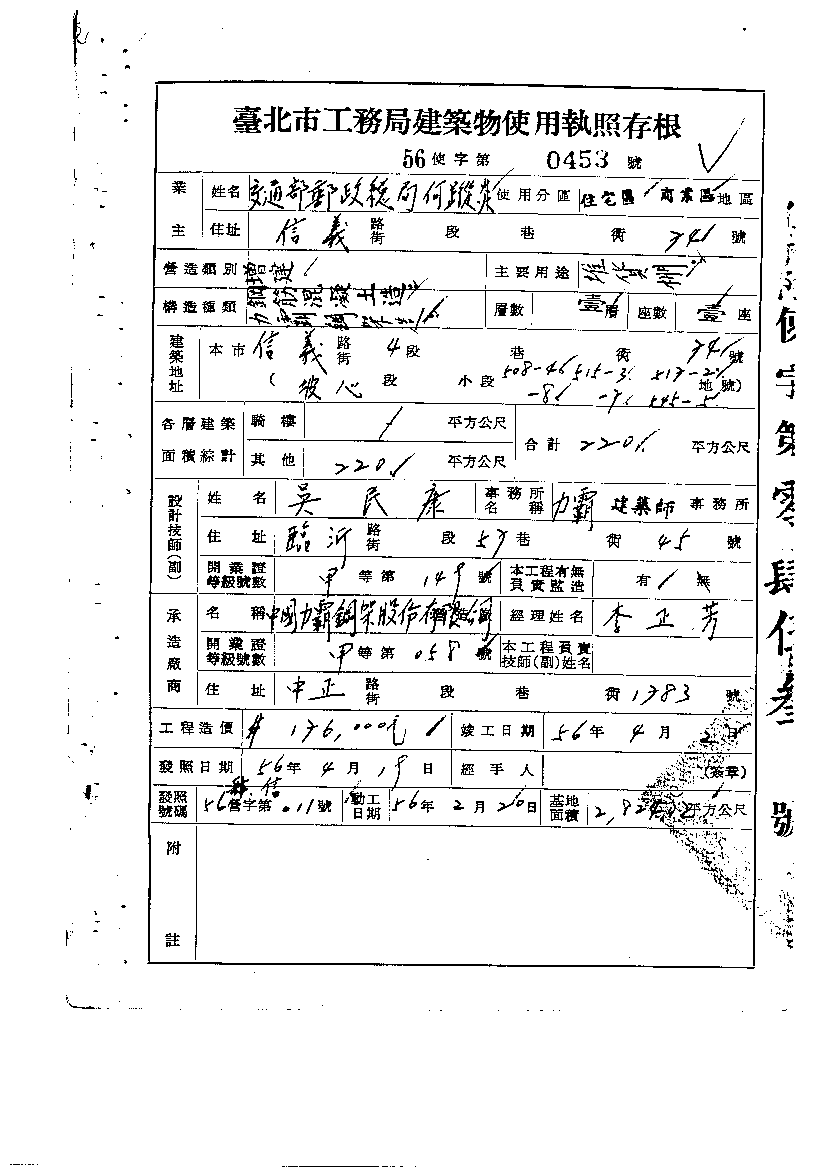 臺北市工務局建築物使用執照存根
56使字第 0453 號
業主 姓名 交通部郵政總局何縱炎 使用分區 住宅區 商業區 地區
住址 信義 路街 段 巷 衖 741 號
營造類別 增建 主要用途 堆貨棚
構造種類 鋼筋混凝土造 力霸鋼 層數 壹層 座數 壹座
建築地址 本市 信義 路街 4段 巷 衖 741號
( 坡心 段 小段 508-46 515-3 517-2 地號)
-8 -7 545-5
各層建築面積綜計 騎樓 / 平方公尺 合計 220 平方公尺
其他 220 平方公尺
設計技師(副) 姓名 吳民康 事務所名稱 力霸 建築師 事務所
住址 臨沂 路街 段 57 巷 衖 45 號
開業證等級號數 甲 等第 149 號 本工程有無負責監造 有 無
承造廠商 名稱 中國力霸鋼架股份有限公司 經理姓名 李正芳
開業證等級號數 甲 等第 058 號 本工程負責技師(副)姓名
住址 中正 路街 段 巷 衖 1783 號
工程造價 176,000元 竣工日期 56年 4月 2日
發照日期 56年 4月 19日 經手人 (簽章)
發照號碼 56營字第 011號 動工日期 56年 2月 20日 基地面積 2,824.12平方公尺
附註
使字第零肆伍叁號